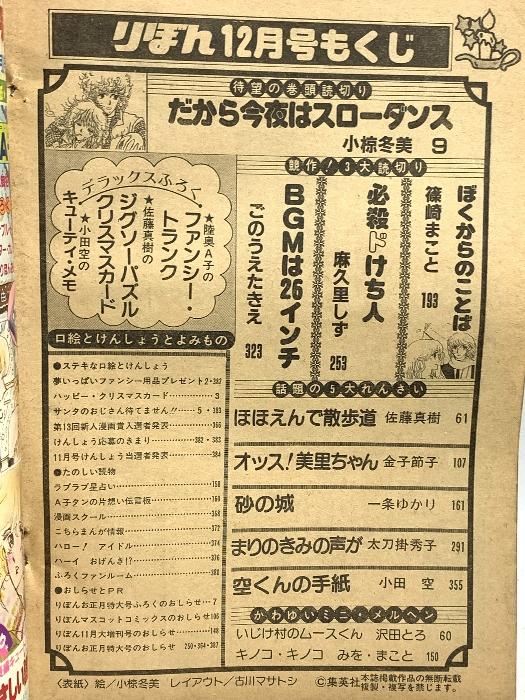 りぼん12月号もくじ
待望の巻頭読切り
だから今夜はスローダンス
小椋冬美 9
競作!3大読切り
ぼくからのことば
篠崎まこと 193
必殺ドけち人
麻久里しず 253
BGMは26インチ
ごのうえたきえ 323
デラックスふろく
★陸奥A子の
ファンシー・
トランク
★佐藤真樹の
ジグソーパズル
クリスマスカード
★小田空の
キューティ・メモ
口絵とけんしょうとよみもの
●ステキな口絵とけんしょう
夢いっぱいファンシー用品プレゼント2・382
ハッピー・クリスマスカード 3
サンタのおじさん待てません!! 5・383
第13回新人漫画賞入選者発表 366
けんしょう応募のきまり 382・383
11月号けんしょう当選者発表 384
●たのしい読物
ラブラブ星占い 158
A子タンの片想い伝言板 160
漫画スクール 368
こちらまんが情報 372
ハロー! アイドル 374
ハーイ おげんき!? 376
ふろくファンルーム 380
●おしらせとPR
りぼんお正月特大号ふろくのおしらせ 7
りぼんマスコットコミックスのおしらせ 106
りぼん11月大増刊号のおしらせ 148
りぼんお正月特大号のおしらせ 250・364・387
話題の5大れんさい
ほほえんで散歩道 佐藤真樹 61
オッス!美里ちゃん 金子節子 107
砂の城 一条ゆかり 161
まりのきみの声が 太刀掛秀子 291
空くんの手紙 小田空 355
かわゆいミニ・メルヘン
いじけ村のムースくん 沢田とろ 60
キノコ・キノコ みを・まこと 150
〈表紙〉絵/小椋冬美 レイアウト/古川マサトシ
©集英社 本誌掲載作品の無断転載・複製・複写を禁じます。